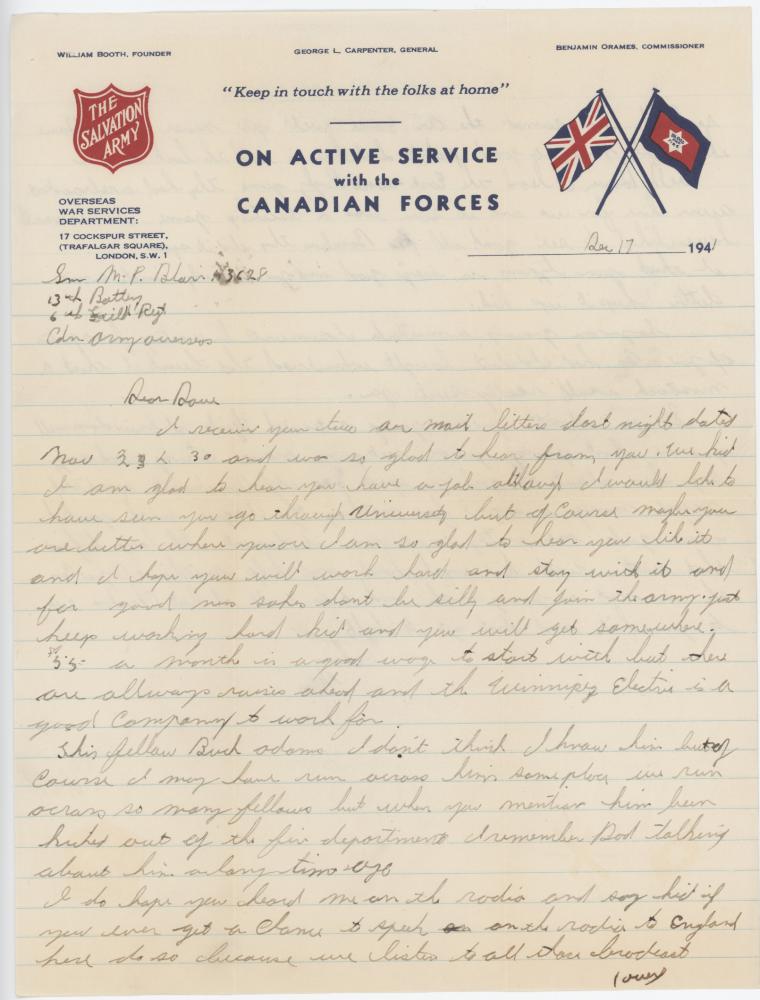 WILLIAM BOOTH, FOUNDER
GEORGE L. CARPENTER, GENERAL
BENJAMIN ORAMES, COMMISSIONER
THE
SALVATION
ARMY
"Keep in touch with the folks at home"
ON ACTIVE SERVICE
with the
CANADIAN FORCES
OVERSEAS
WAR SERVICES
DEPARTMENT:
17 COCKSPUR STREET,
(TRAFALGAR SQUARE),
LONDON, S.W. 1
Dec 17 1941
Gnr M. P. Blair
13th Battery
6th Field Regt
Cdn army overseas
Dear Dave
I receive your two air mail letters last night dated
Nov 23 & 30 and was so glad to hear from you. Well kid
I am glad to hear you have a job although I would like to
have seen you go through University but of Course maybe you
are better where you are I am so glad to hear you like it
and I hope you will work hard and stay with it and
for good sakes dont be silly and join the army. just
keep working hard kid and you will get somewhere.
$55 a month is a good wage to start with but there
are allways raises ahead and the Winnipeg Electric is a
good Company to work for.
This fellow Buck adams I don't think I know him but of
Course I may have run across him someplace we run
across so many fellows but when you mention him been
kicked out of the fire department I remember Dad talking
about him a long time ago
I do hope you heard me on the radio and say kid if
you ever get a Chance to speak on the radio to England
here do so because we listen to all those brodcast
(over)